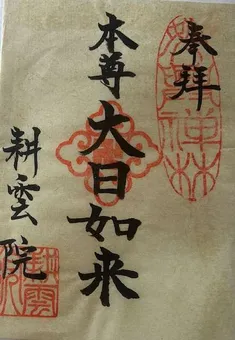 奉拝
本尊
大日如来
耕雲院